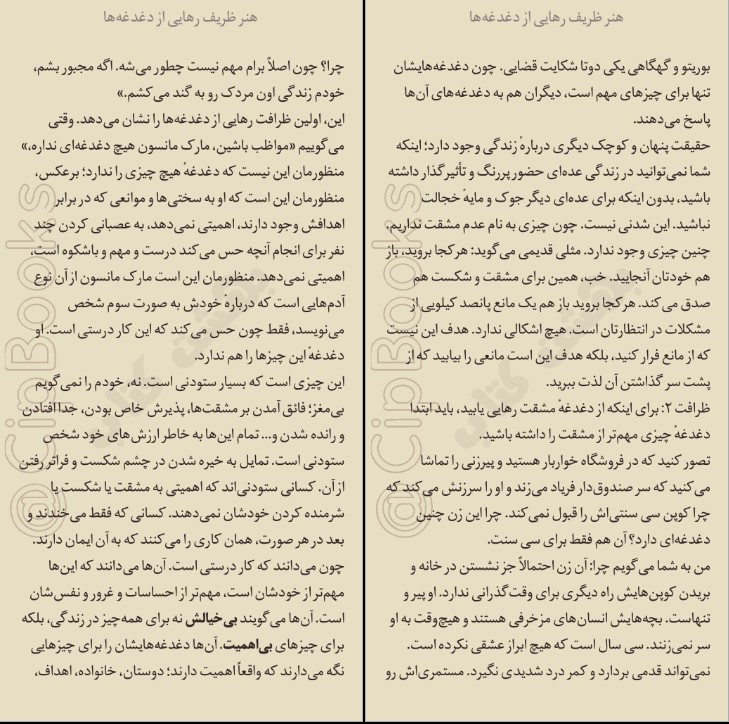 هنر ظریف رهایی از دغدغه‌ها
چرا؟ چون اصلاً برام مهم نیست چطور می‌شه. اگه مجبور بشم،
خودم زندگی اون مردک رو به گند می‌کشم.»
این، اولین ظرافت رهایی از دغدغه‌ها را نشان می‌دهد. وقتی
می‌گوییم «مواظب باشین، مارک مانسون هیچ دغدغه‌ای نداره،»
منظورمان این نیست که دغدغهٔ هیچ چیزی را ندارد؛ برعکس،
منظورمان این است که او به سختی‌ها و موانعی که در برابر
اهدافش وجود دارند، اهمیتی نمی‌دهد، به عصبانی کردن چند
نفر برای انجام آنچه حس می‌کند درست و مهم و باشکوه است،
اهمیتی نمی‌دهد. منظورمان این است مارک مانسون از آن نوع
آدم‌هایی است که دربارهٔ خودش به صورت سوم شخص
می‌نویسد، فقط چون حس می‌کند که این کار درستی است. او
دغدغهٔ این چیزها را هم ندارد.
این چیزی است که بسیار ستودنی است. نه، خودم را نمی‌گویم
بی‌مغز؛ فائق آمدن بر مشقت‌ها، پذیرش خاص بودن، جدا افتادن
و رانده شدن و... تمام این‌ها به خاطر ارزش‌های خود شخص
ستودنی است. تمایل به خیره شدن در چشم شکست و فراتر رفتن
از آن. کسانی ستودنی‌اند که اهمیتی به مشقت یا شکست یا
شرمنده کردن خودشان نمی‌دهند. کسانی که فقط می‌خندند و
بعد در هر صورت، همان کاری را می‌کنند که به آن ایمان دارند.
چون می‌دانند که کار درستی است. آن‌ها می‌دانند که این‌ها
مهم‌تر از خودشان است، مهم‌تر از احساسات و غرور و نفس‌شان
است. آن‌ها می‌گویند بی‌خیالش نه برای همه‌چیز در زندگی، بلکه
برای چیزهای بی‌اهمیت. آن‌ها دغدغه‌هایشان را برای چیزهایی
نگه می‌دارند که واقعاً اهمیت دارند؛ دوستان، خانواده، اهداف،
@CipBooks
هنر ظریف رهایی از دغدغه‌ها
بوریتو و گهگاهی یکی دوتا شکایت قضایی. چون دغدغه‌هایشان
تنها برای چیزهای مهم است، دیگران هم به دغدغه‌های آن‌ها
پاسخ می‌دهند.
حقیقت پنهان و کوچک دیگری دربارهٔ زندگی وجود دارد؛ اینکه
شما نمی‌توانید در زندگی عده‌ای حضور پررنگ و تأثیرگذار داشته
باشید، بدون اینکه برای عده‌ای دیگر جوک و مایهٔ خجالت
نباشید. این شدنی نیست. چون چیزی به نام عدم مشقت نداریم.
چنین چیزی وجود ندارد. مثلی قدیمی می‌گوید: هرکجا بروید، باز
هم خودتان آنجایید. خب، همین برای مشقت و شکست هم
صدق می‌کند. هرکجا بروید باز هم یک مانع پانصد کیلویی از
مشکلات در انتظارتان است. هیچ اشکالی ندارد. هدف این نیست
که از مانع فرار کنید، بلکه هدف این است مانعی را بیابید که از
پشت سر گذاشتن آن لذت ببرید.
ظرافت ۲: برای اینکه از دغدغهٔ مشقت رهایی یابید، باید ابتدا
دغدغهٔ چیزی مهم‌تر از مشقت را داشته باشید.
تصور کنید که در فروشگاه خواربار هستید و پیرزنی را تماشا
می‌کنید که سر صندوق‌دار فریاد می‌زند و او را سرزنش می‌کند که
چرا کوپن سی سنتی‌اش را قبول نمی‌کند. چرا این زن چنین
دغدغه‌ای دارد؟ آن هم فقط برای سی سنت.
من به شما می‌گویم چرا: آن زن احتمالاً جز نشستن در خانه و
بریدن کوپن‌هایش راه دیگری برای وقت‌گذرانی ندارد. او پیر و
تنهاست. بچه‌هایش انسان‌های مزخرفی هستند و هیچ‌وقت به او
سر نمی‌زنند. سی سال است که هیچ ابراز عشقی نکرده است.
نمی‌تواند قدمی بردارد و کمر درد شدیدی نگیرد. مستمری‌اش رو
@CipBooks